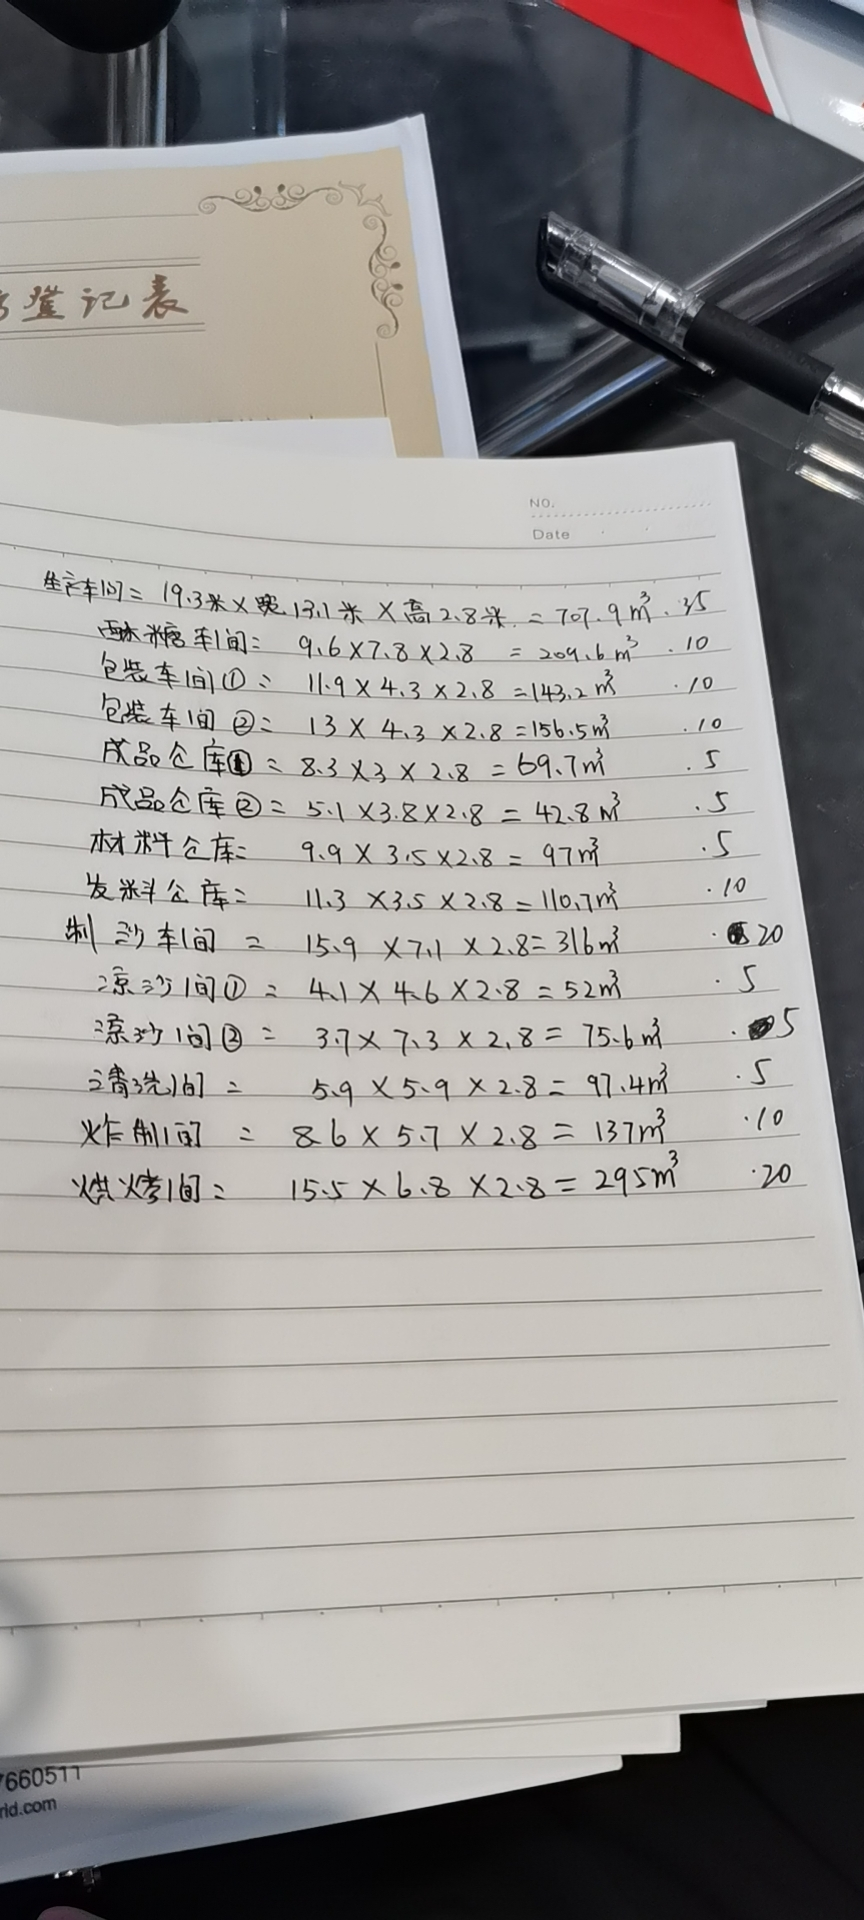 登记表
NO.
Date
生产车间= 19.3米×宽13.1米×高2.8米.=707.9m³ .35
酥糖车间= 9.6×7.8×2.8 =209.6m³ .10
包装车间①= 11.9×4.3×2.8=143.2m³ .10
包装车间②= 13×4.3×2.8=156.5m³ .10
成品仓库①= 8.3×3×2.8=69.7m³ .5
成品仓库②= 5.1×3.8×2.8=42.8m³ .5
材料仓库= 9.9×3.5×2.8=97m³ .5
发料仓库= 11.3×3.5×2.8=110.7m³ .10
制沙车间= 15.9×7.1×2.8=316m³ .20
凉沙间①= 4.1×4.6×2.8=52m³ .5
凉沙间②= 3.7×7.3×2.8=75.6m³ .5
清洗间= 5.9×5.9×2.8=97.4m³ .5
炸制间= 8.6×5.7×2.8=137m³ .10
烘烤间= 15.5×6.8×2.8=295m³ .20
7660511
rld.com